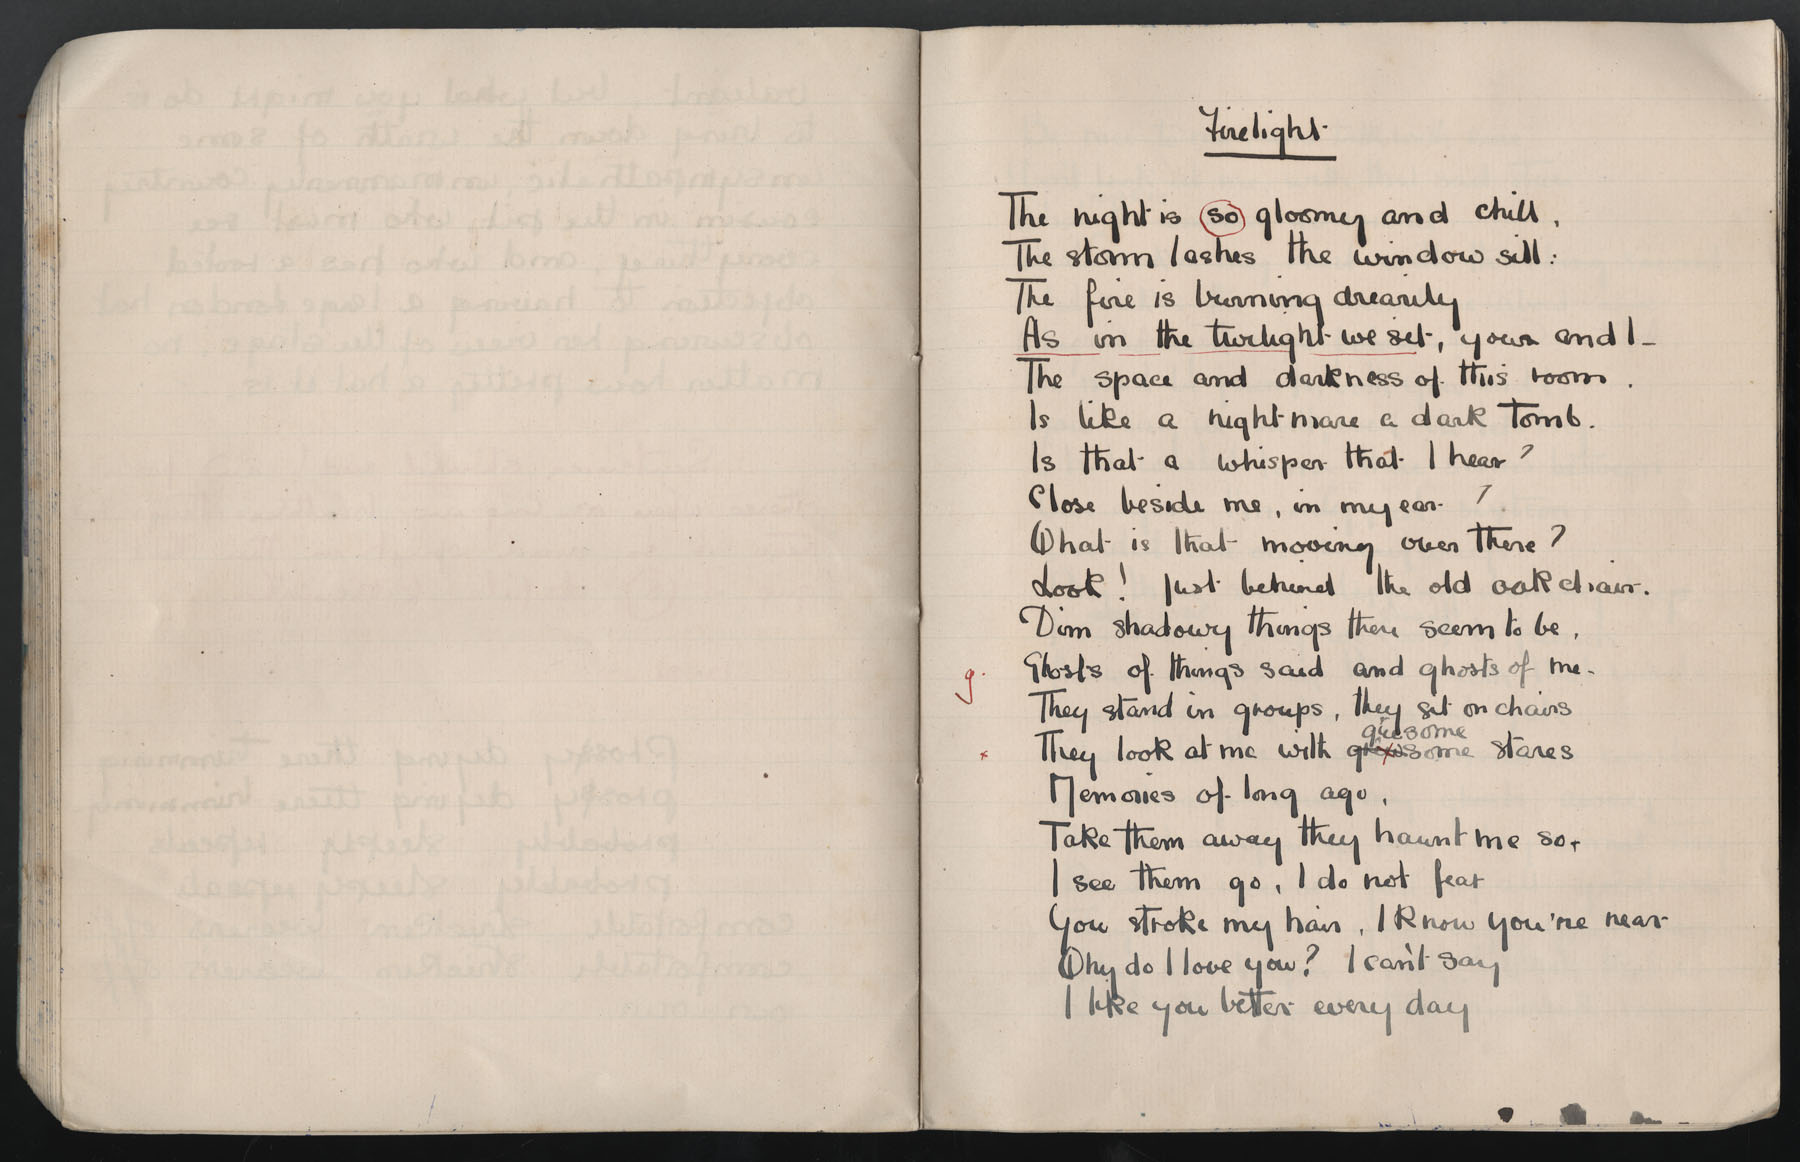 Firelight
The night is so gloomy and chill,
The storm lashes the window sill:
The fire is burning drearily
As in the twilight we sit, you and I -
The space and darkness of this room.
Is like a nightmare a dark Tomb.
Is that a whisper that I hear?
Close beside me, in my ear?
What is that moving over there?
Look! Just behind the old oak chair.
Dim shadowy things there seem to be,
g. Ghosts of things said and ghosts of me.
They stand in groups, they sit on chairs
gruesome
x They look at me with some stares
Memories of long ago,
Take them away they haunt me so.
I see them go, I do not fear
You stroke my hair, I know you're near
Why do I love you? I can't say
I like you better every day